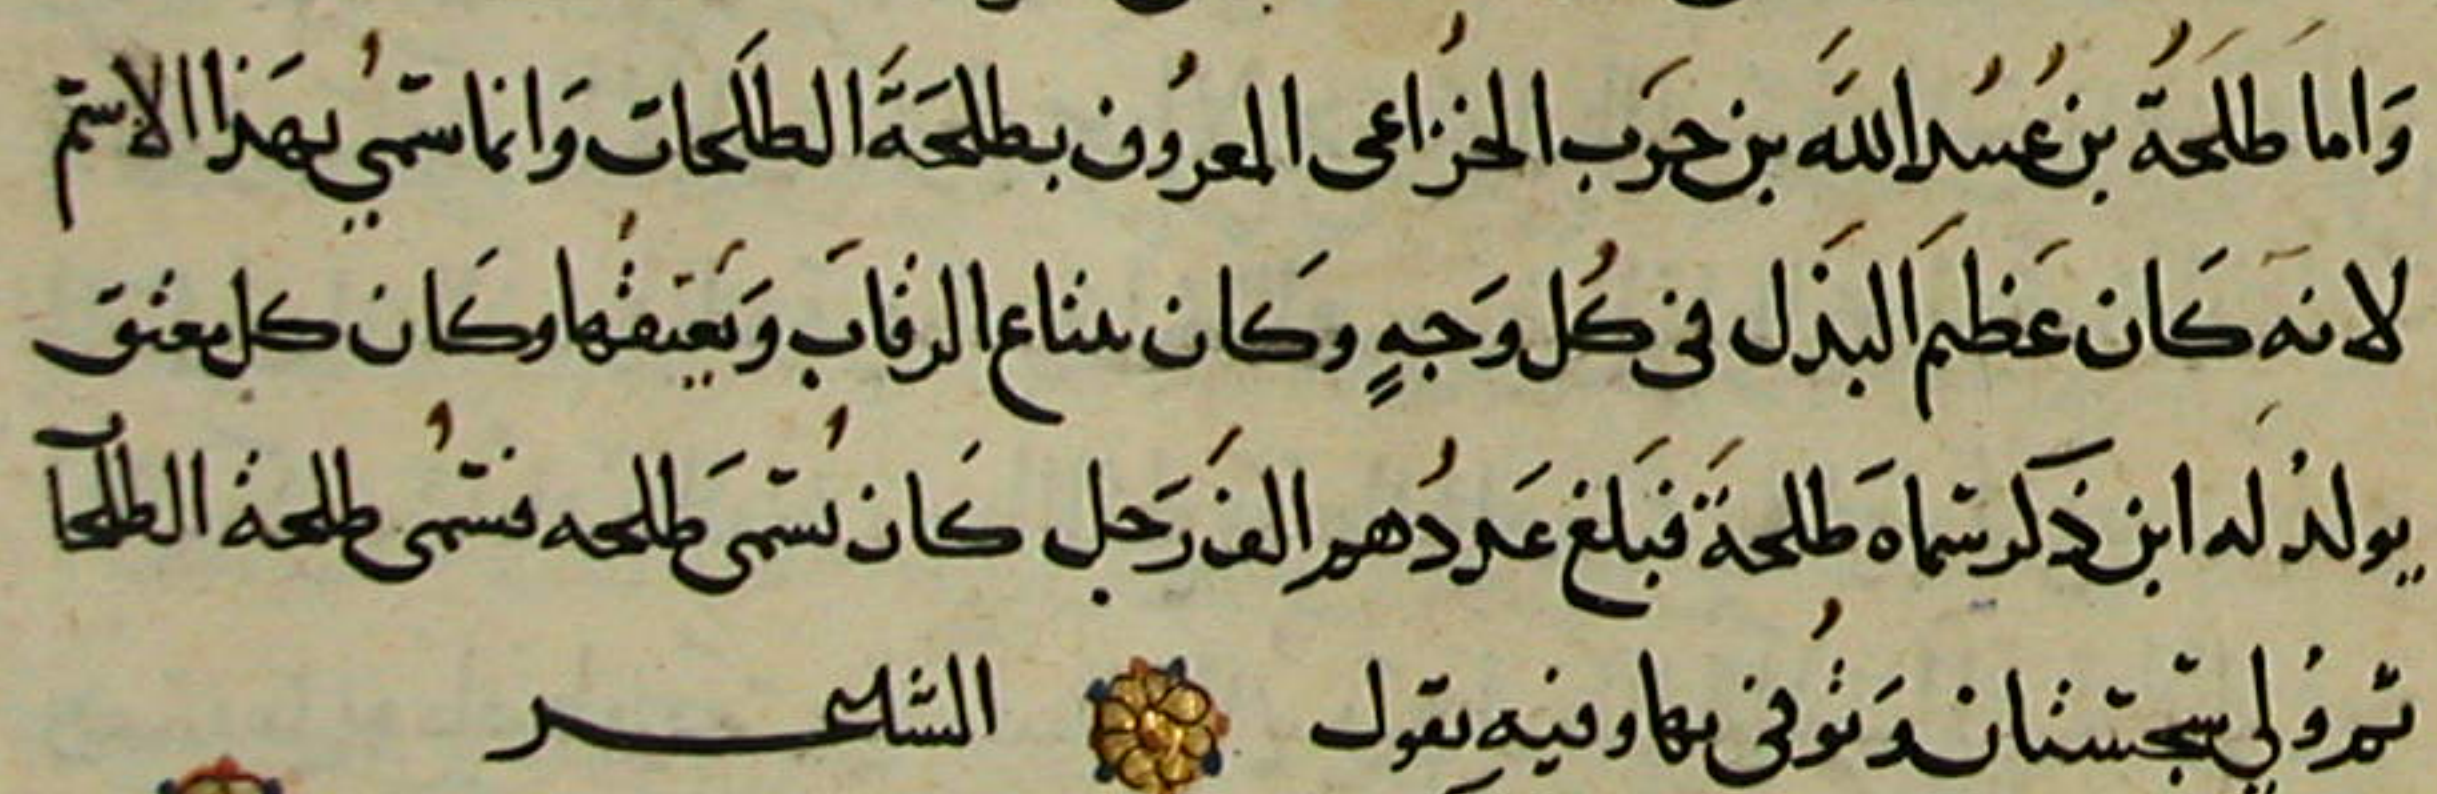 وَاما طَلحَةُ بنُ عُبيدُ اللهَ بن حَرَب الخزُاعى المعرُوف بطلحَةَ الطلَحات وَانما سمّيُ بهَذا الاسم
لانه كَان عَظيمَ البذَل فى كُل وَجهٍ وكَان يبتاع الرقابَ وَيَعتقُها وكَان كل معتق
يولدُ له ابن ذكر سماهَ طلحة فبَلغ عَددُهم الفَ رَجل كَان يُسمىَ طلحه فسُمى طلحة الطلحا
ثم وُلي سجستان وَتُوُفى بها وفيهِ يقول الشاعر